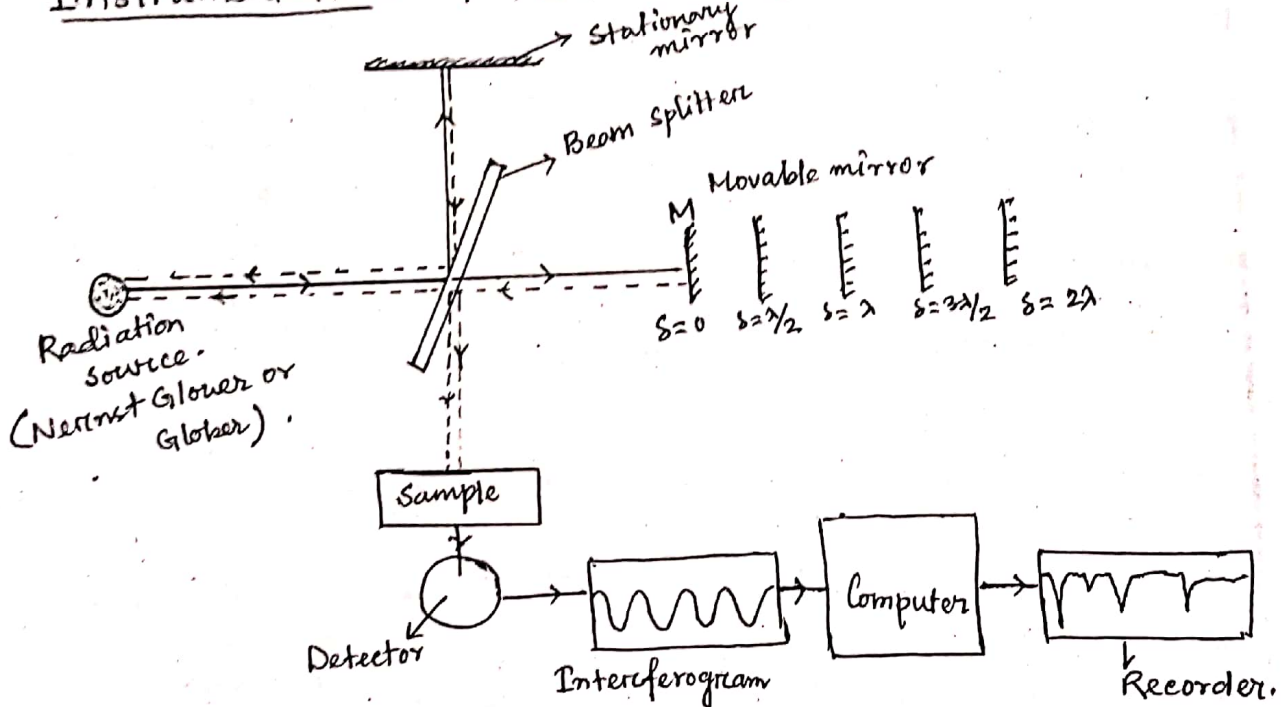 Stationary
mirror
Beam splitter
Movable mirror
M
δ=0 δ=λ/2 δ=λ δ=3λ/2 δ=2λ
Radiation
source.
(Nernst Glower or
Glober).
Sample
Computer
Detector
Interferogram
Recorder.